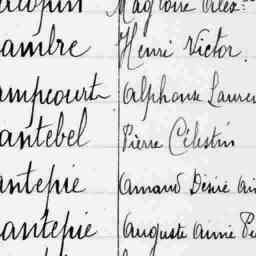 Magloire Alex
ambre Henri Victor.
ampcourt Alphonse Lauren
antebel Pierre Célestin
antepie Amand Désiré
antepie Auguste Aimé